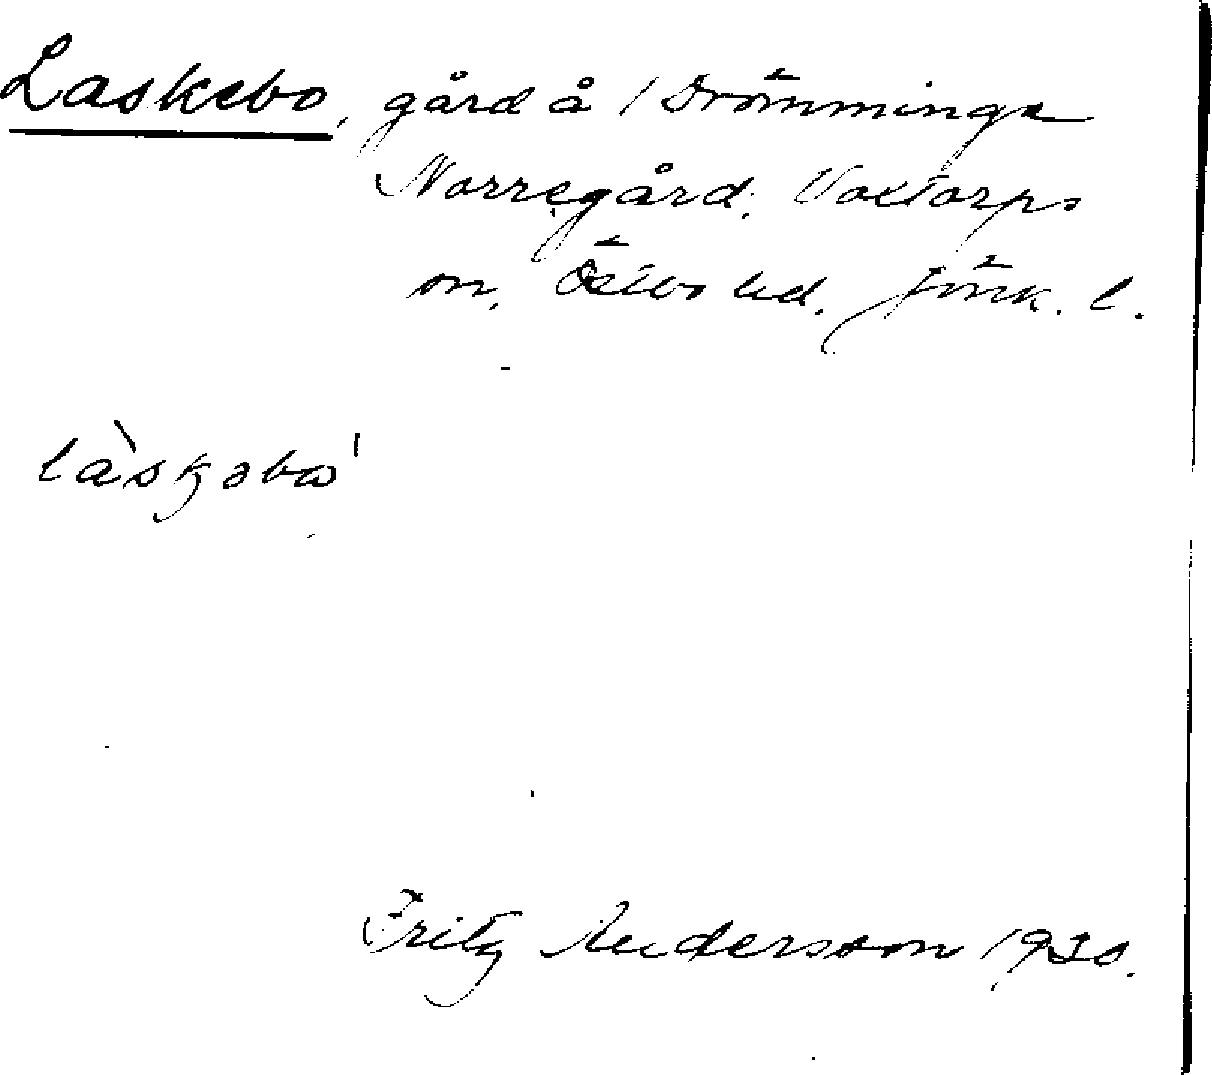 Laskebo, gård å Drömminge
Norregård, Voxtorps
sn, Östbo hd. Jönk. l.
làskəbω'
Fritz Andersson 1930.